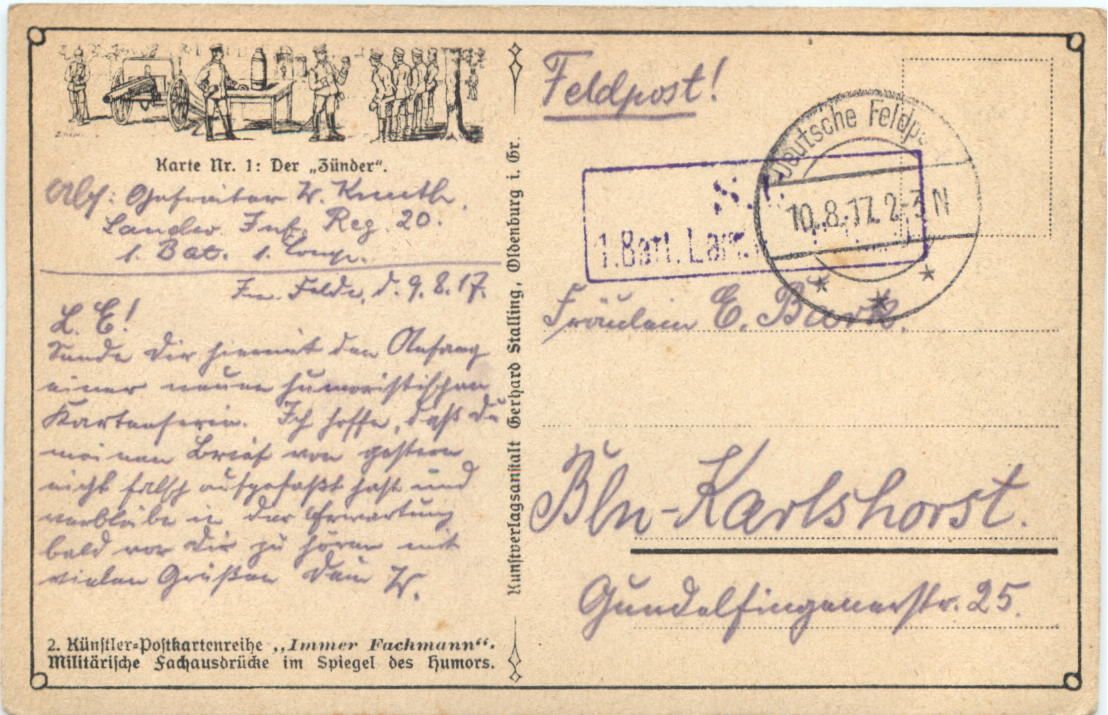 Karte Nr. 1: Der „Zünder“.
Abs: Gefreiter W. Knuth.
Landw. Inf. Reg. 20.
1. Bat. 1. Comp.
Im Felde, d. 9.8.17.
L. E!
Sende Dir hiermit den Anfang
einer neuen humoristischen
Kartenserie. Ich hoffe, daß Du
meinen Brief von gestern
nicht falsch aufgefaßt hast und
verbleibe in der Erwartung
bald von Dir zu hören mit
vielen Grüßen Dein W.
2. Künstler=Postkartenreihe „Immer Fachmann“.
Militärische Fachausdrücke im Spiegel des Humors.
Kunstverlagsanstalt Gerhard Stalling, Oldenburg i. Gr.
Feldpost!
Deutsche Feldp
10.8.17. 2-3 N
S.
1. Batl.
Fräulein E. Burk.
Bln-Karlshorst.
Gundelfingenerstr. 25.